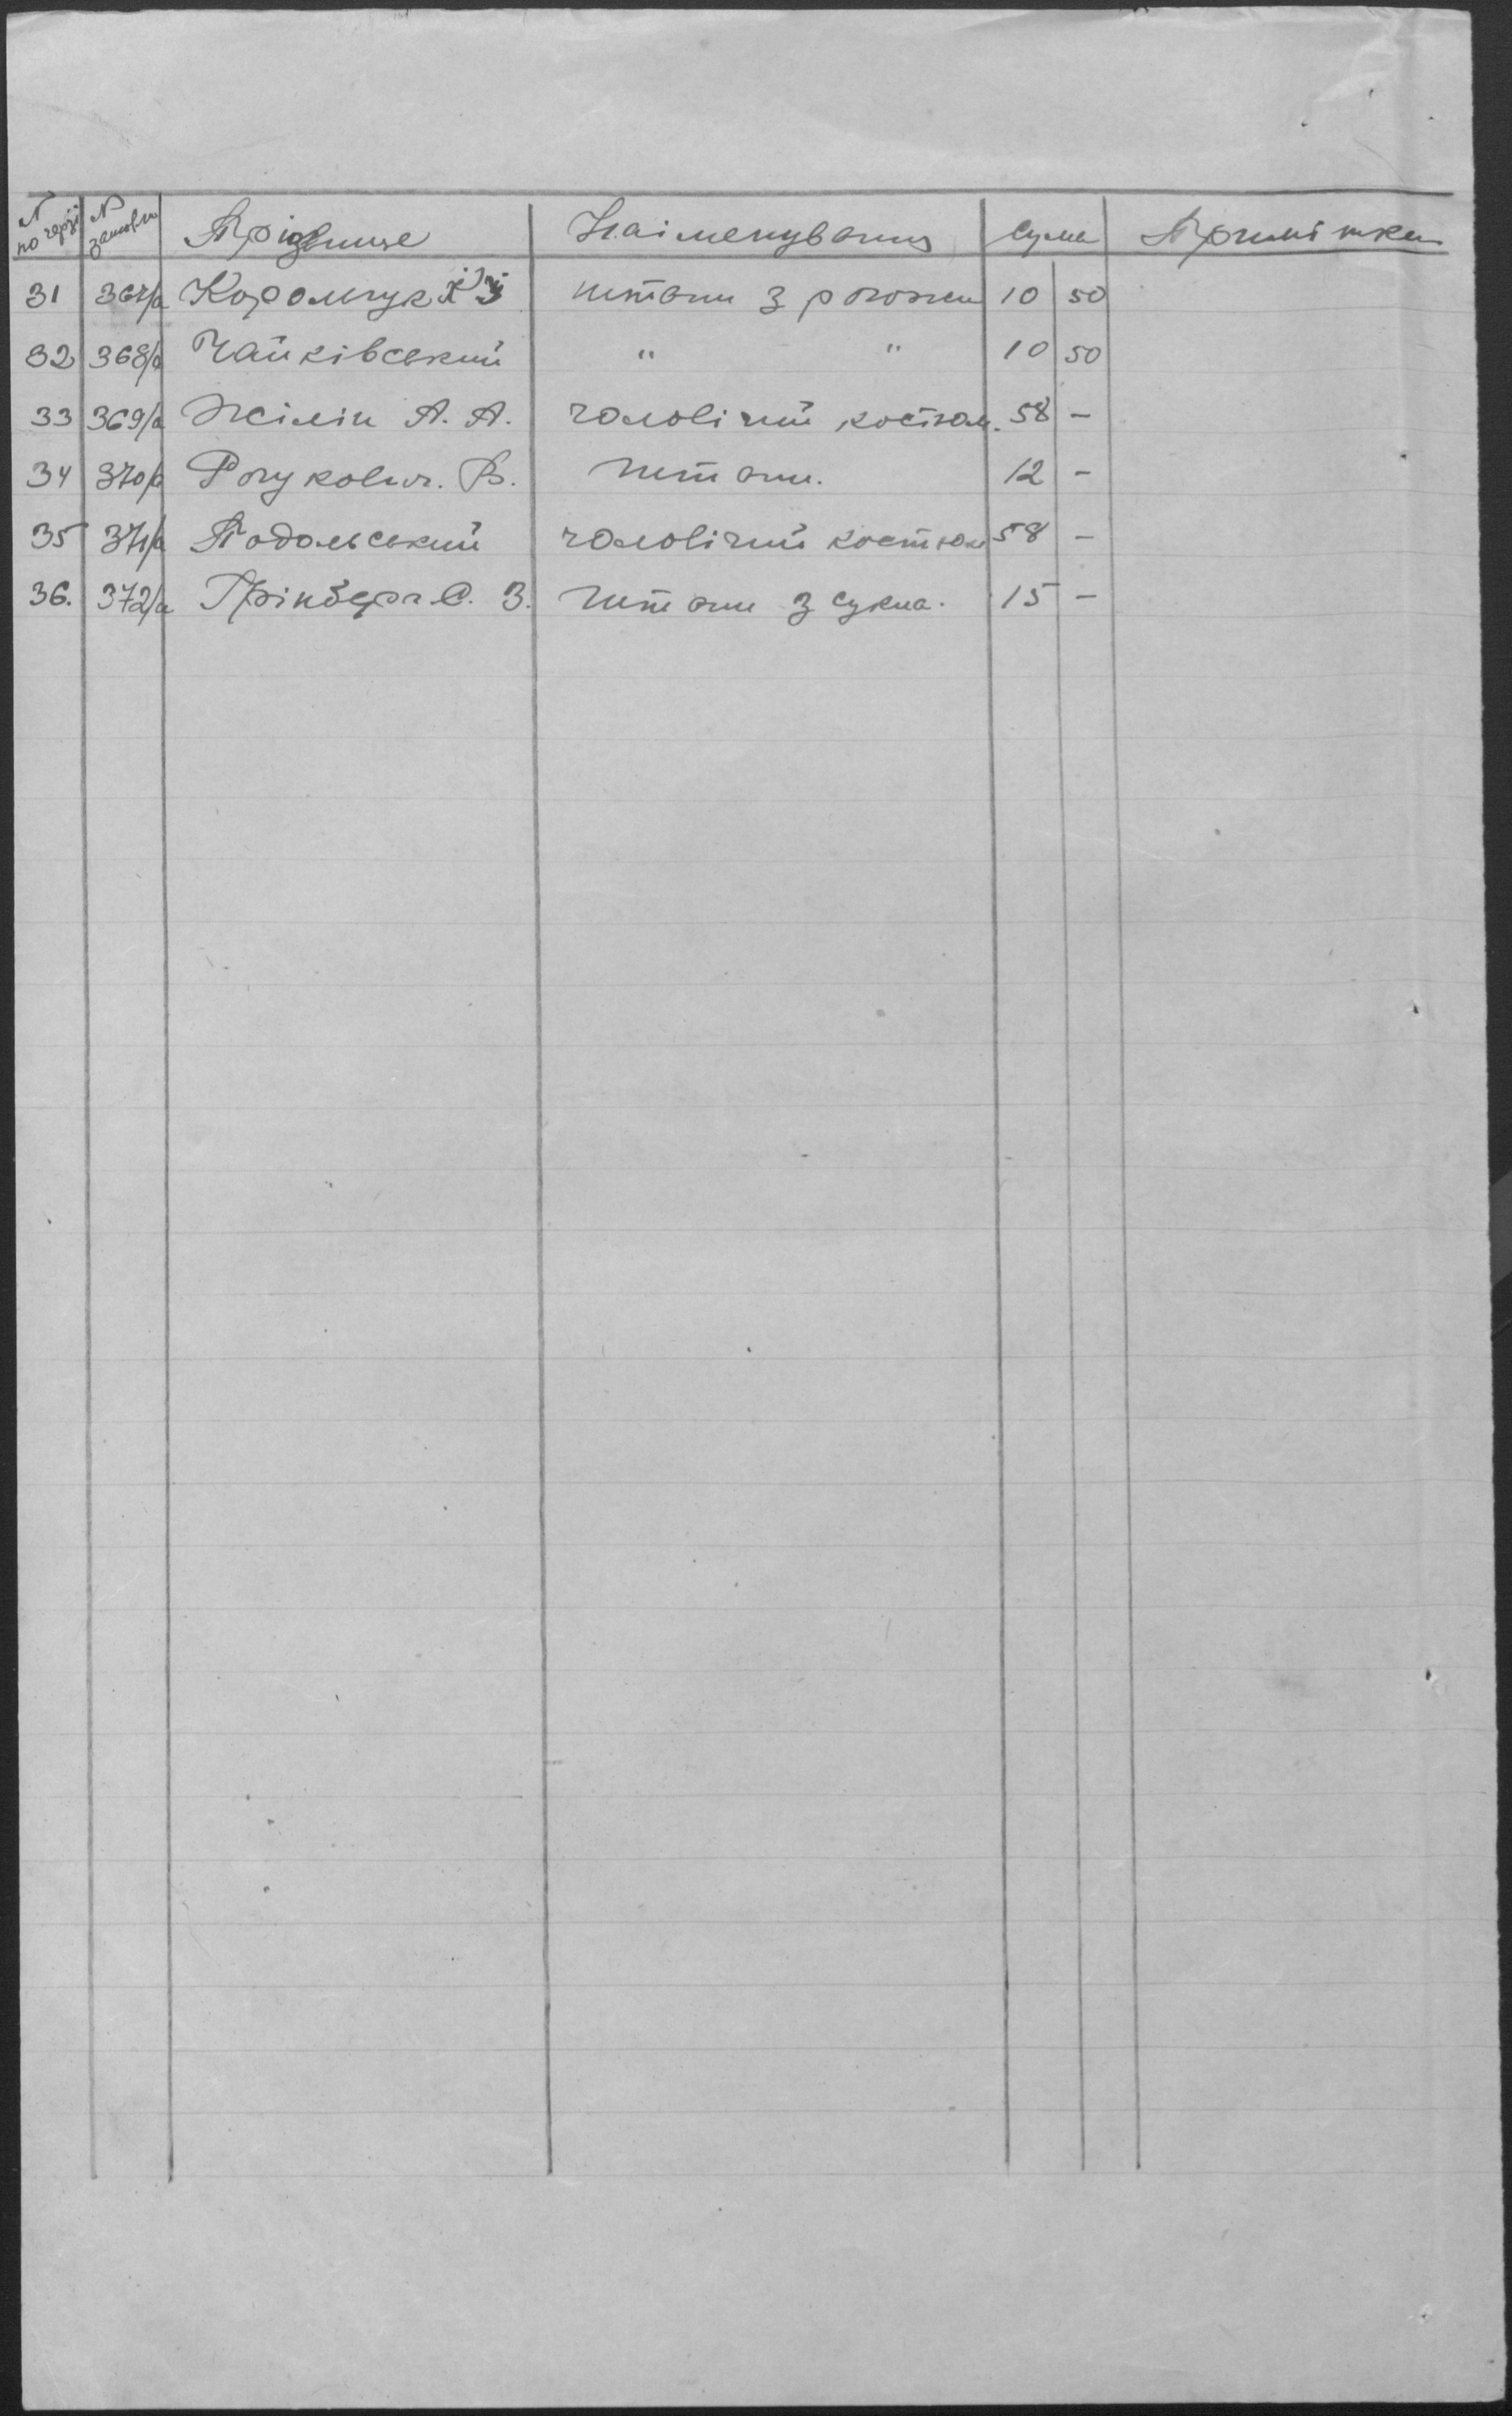 N по черзі N замовл Прізвище Найменування Сума Примітка
31 367/а Коромчук штани з рогожи 10 50
32 368/а Чайківський " " 10 50
33 369/а Жілін А. А. чоловічий костюм. 58 -
34 370/а В. Штани. 12 -
35 371/а Подольський чоловічий костюм 58 -
36. 372/а Грінберг С. З. Штани з сукна. 15 -